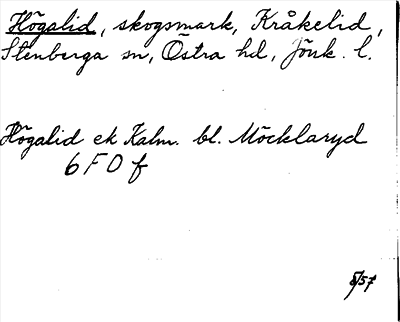 Högalid, skogsmark, Kråkelid,
Stenberga sn, Östra hd, Jönk. l.
Högalid ek Kalm. bl. Möcklaryd
6 F O f
8/57